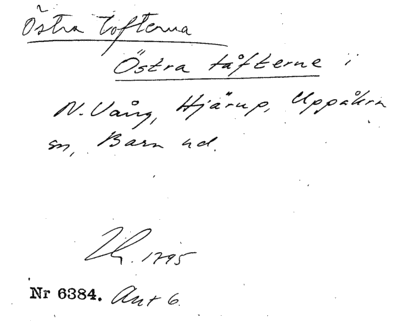 Östra tofterna
Östra tåfterne i
N. Vång, Hjärup, Uppåkra
sn, Bara hd.
1795
Nr 6384. Akt 6